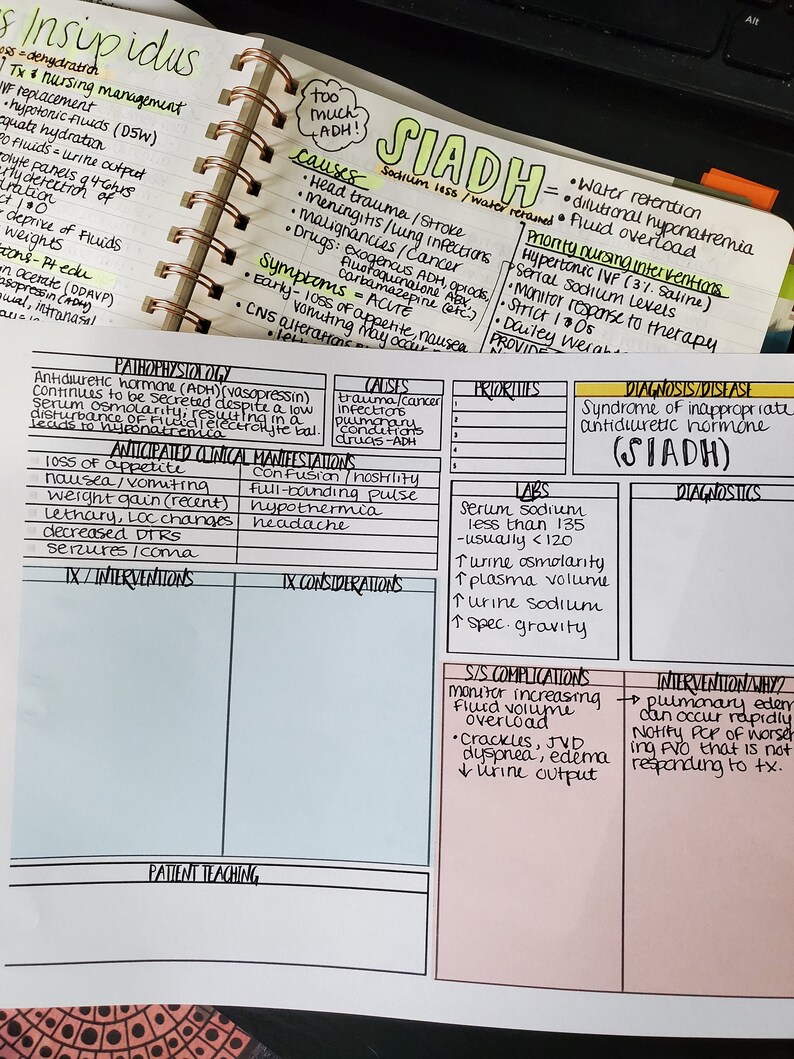 Alt
Insipidus
= dehydration
Tx & nursing management
IVF replacement
• hypotonic fluids (D5W)
hydration
fluids = urine output
panels q4-6hrs
detection of
I & O
deprive of fluids
weights
Pt edu
acetate (DDAVP)
(ADH)
intranasal
too
much
ADH!
SIADH =
Sodium loss / water retained
• water retention
• dilutional hyponatremia
• fluid overload
causes
• Head trauma / stroke
• meningitis / lung infections
• malignancies / cancer
• Drugs: exogenous ADH, opioids,
fluoroquinolone ABX,
carbamazepine (etc)
Symptoms = ACUTE
• Early - loss of appetite, nausea
vomiting may occur
• CNS alterations
Priority nursing interventions
Hypertonic IVF (3% saline)
• Serial sodium levels
• Monitor response to therapy
• Strict I & Os
• Dailey weight
PROVIDE
PATHOPHYSIOLOGY
Antidiuretic hormone (ADH)(vasopressin)
continues to be secreted despite a low
serum osmolarity; resulting in a
disturbance of fluid/electrolyte bal.
leads to hyponatremia
CAUSES
trauma/cancer
infections
pulmonary
conditions
drugs-ADH
PRIORITIES
1
2
3
4
5
DIAGNOSIS/DISEASE
Syndrome of inappropriate
antidiuretic hormone
(SIADH)
ANTICIPATED CLINICAL MANIFESTATIONS
loss of appetite
nausea/vomiting
weight gain (recent)
lethary, LOC changes
decreased DTRs
seizures/coma
confusion/hostility
full-bounding pulse
hypothermia
headache
LABS
Serum sodium
less than 135
-usually <120
↑ urine osmolarity
↑ plasma volume
↑ urine sodium
↑ spec. gravity
DIAGNOSTICS
TX / INTERVENTIONS
TX CONSIDERATIONS
S/S COMPLICATIONS
monitor increasing
fluid volume
overload
• Crackles, JVD
dyspnea, edema
↓ urine output
INTERVENTION/WHY?
→ pulmonary edem
can occur rapidly
Notify PCP of worsen
ing FVO that is not
responding to tx.
PATIENT TEACHING